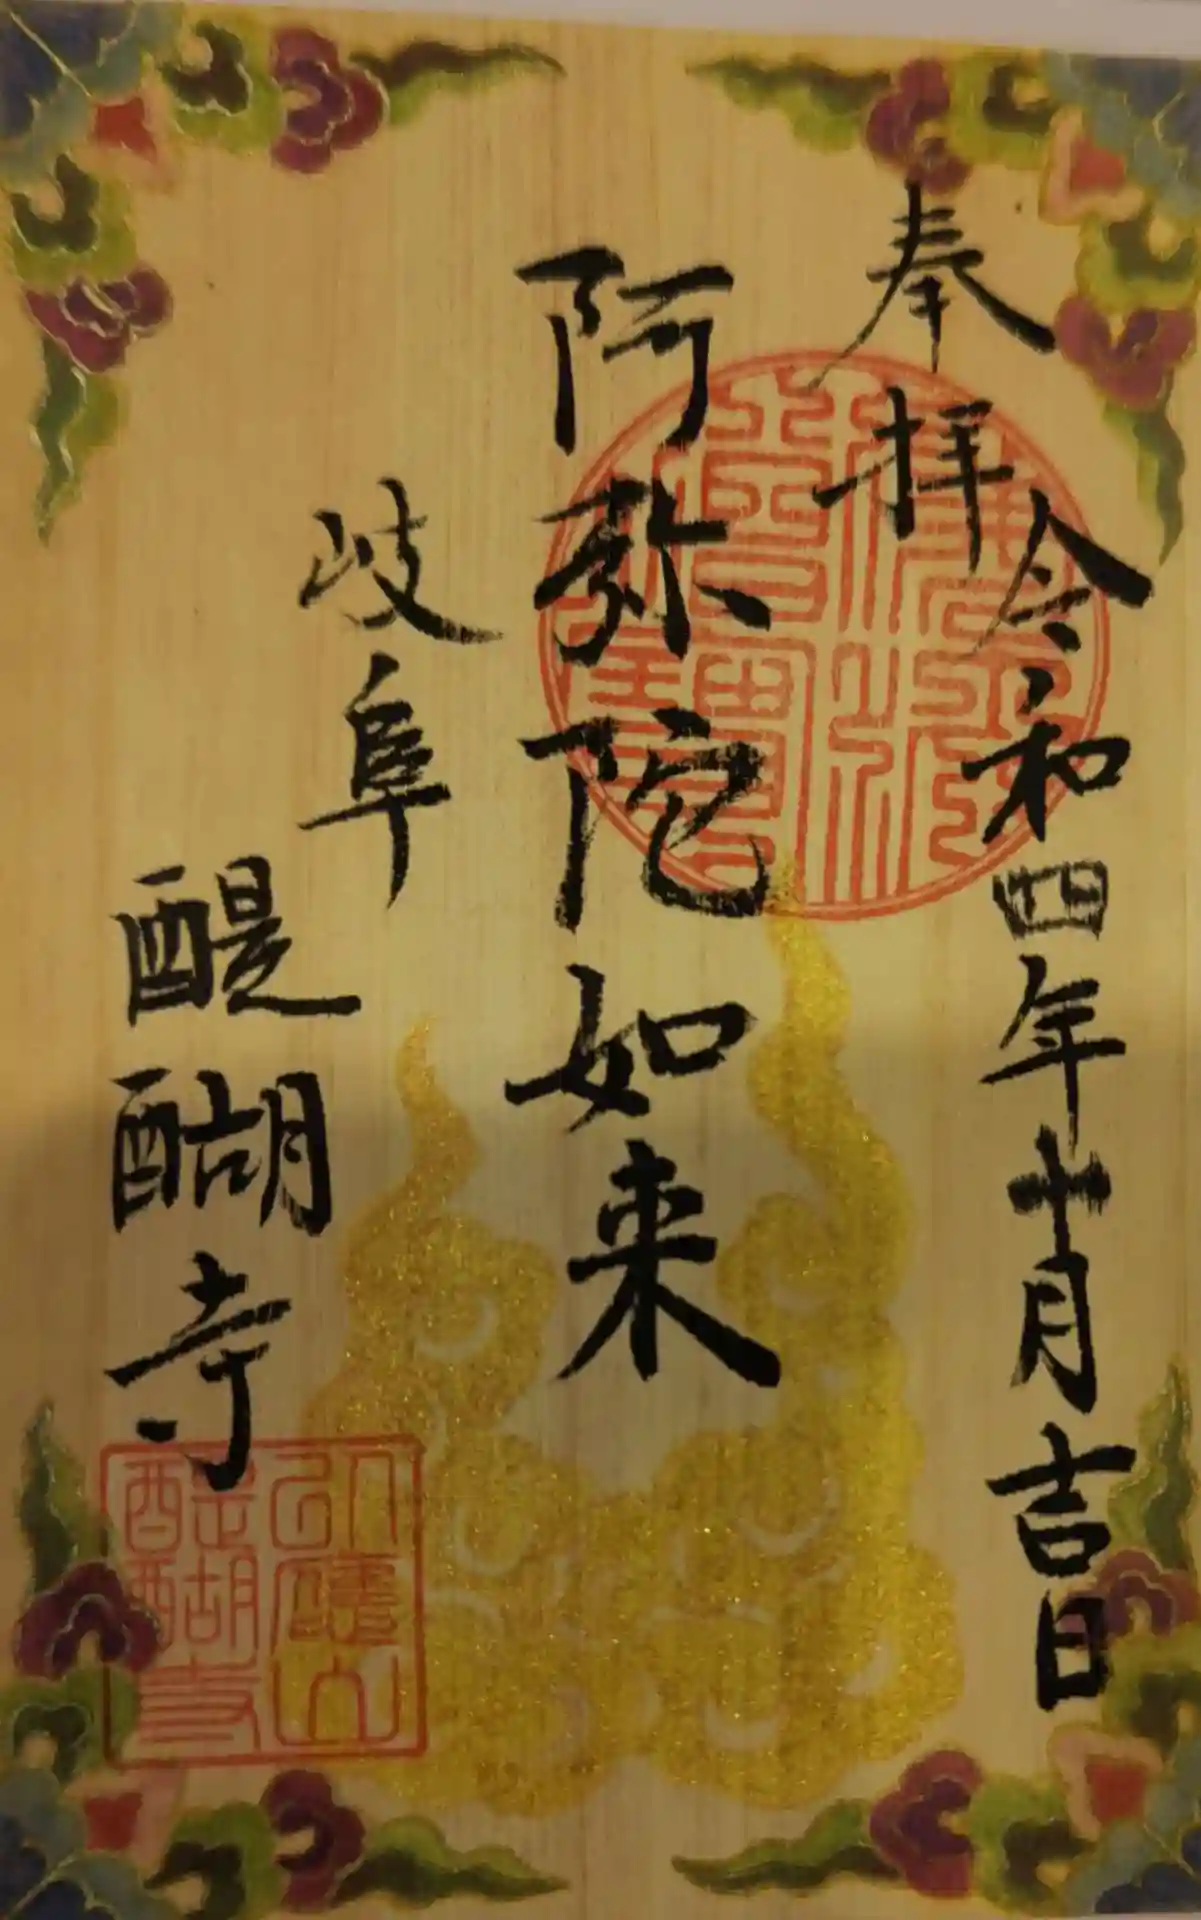 奉拝
令和四年十月吉日
阿弥陀如来
岐阜
醍醐寺
醍醐寺